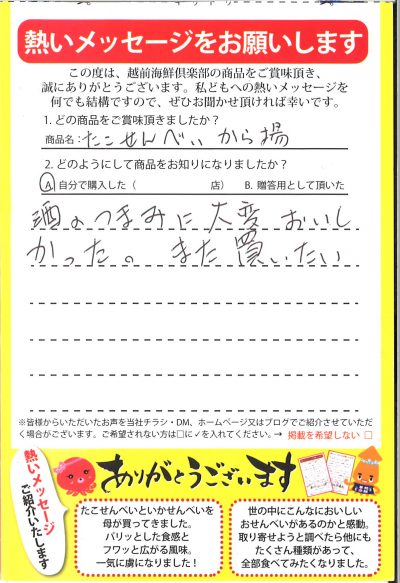 熱いメッセージをお願いします
この度は、越前海鮮倶楽部の商品をご賞味頂き、
誠にありがとうございます。私どもへの熱いメッセージを
何でも結構ですので、ぜひお聞かせ頂ければ幸いです。
1. どの商品をご賞味頂きましたか?
商品名:たこせんべい から揚
2. どのようにして商品をお知りになりましたか?
A 自分で購入した(　　　　　店)　B. 贈答用として頂いた
酒のつまみに大変おいし
かった。また買いたい
※皆様からいただいたお声を当社チラシ・DM、ホームページ又はブログでご紹介させていただ
く場合がございます。ご希望されない方は□に✓を入れてください。→ 掲載を希望しない □
熱いメッセージ
ご紹介いたします
ありがとうございます
たこせんべいといかせんべいを
母が買ってきました。
パリッとした食感と
フワッと広がる風味。
一気に虜になりました!
世の中にこんなにおいしい
おせんべいがあるのかと感動。
取り寄せようと調べたら他にも
たくさん種類があって、
全部食べてみたくなりました。